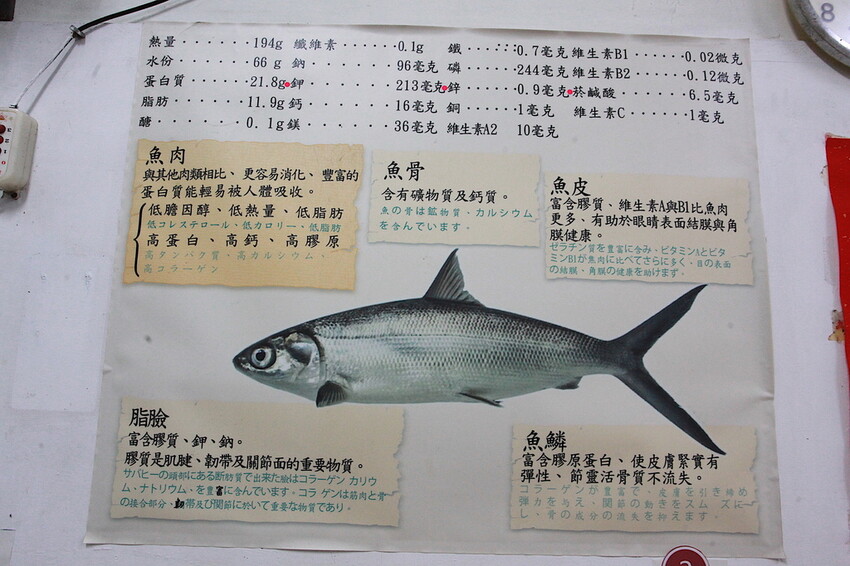 熱量・・・・・・・194g 纖維素・・・・・・0.1g 鐵・・・・・・0.7毫克 維生素B1・・・・・・0.02微克
水份・・・・・・・・66 g 鈉・・・・・・・・96毫克 磷・・・・・・244毫克 維生素B2・・・・・・0.12微克
蛋白質・・・・・・21.8g 鉀・・・・・・・・213毫克 鋅・・・・・・0.9毫克 菸鹼酸・・・・・・・6.5毫克
脂肪・・・・・・・11.9g 鈣・・・・・・・・16毫克 銅・・・・・・1毫克 維生素C・・・・・・1毫克
醣・・・・・・・・0.1g 鎂・・・・・・・・36毫克 維生素A2 10毫克
魚肉
與其他肉類相比、更容易消化、豐富的
蛋白質能輕易被人體吸收。
低膽固醇、低熱量、低脂肪
低コレステロール・低カロリー・低脂肪
高蛋白、高鈣、高膠原
高タンパク質・高カルシウム・
高コラーゲン
魚骨
含有礦物質及鈣質。
魚の骨は鉱物質・カルシウム
を含んでいます。
魚皮
富含膠質、維生素A與B1比魚肉
更多、有助於眼睛表面結膜與角
膜健康。
ゼラチン質を豊富に含み、ビタミンAとビタ
ミンB1が魚肉に比べてさらに多く、目の表面
の結膜、角膜の健康を助けます。
脂臉
富含膠質、鉀、鈉。
膠質是肌腱、韌帶及關節面的重要物質。
サバヒーの頭部にある断肪質で出来た臉はコラーゲン カリウ
ム、ナトリウム、を豊富に含んでいます。コラ ゲンは筋肉と骨
の接合部分、靭帯及び関節に於いて重要な物質であり。
魚鱗
富含膠原蛋白、使皮膚緊實有
彈性、節靈活骨質不流失。
コラーゲンが豊富で、皮膚を引き締め
弾力を与え、関節の動きをスム ズに
し、骨の成分の流失を抑えます。
8